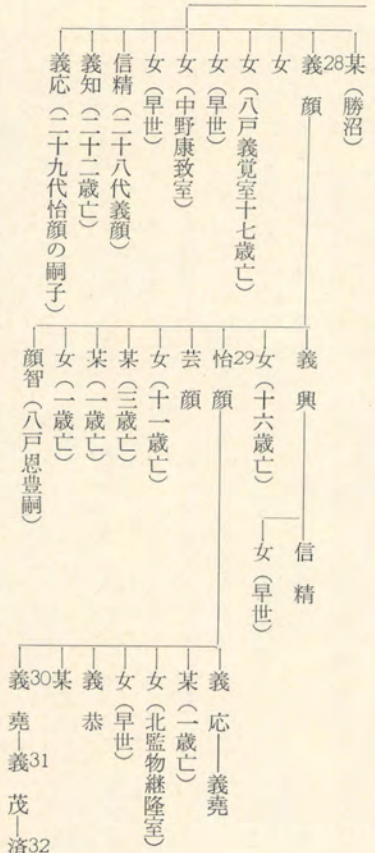 某（勝沼）
28義顔
女
女（八戸義覚室十七歳亡）
女（早世）
女（中野康致室）
女（早世）
信精（二十八代義顔）
義知（二十二歳亡）
義応（二十九代怡顔の嗣子）
義興
女（十六歳亡）
29怡顔
芸顔
女（十一歳亡）
某（三歳亡）
某（一歳亡）
女（一歳亡）
顔智（八戸恩豊嗣）
信精
女（早世）
義応―義堯
某（一歳亡）
女（北監物継隆室）
女（早世）
義恭
某
30義堯―31義茂―32済